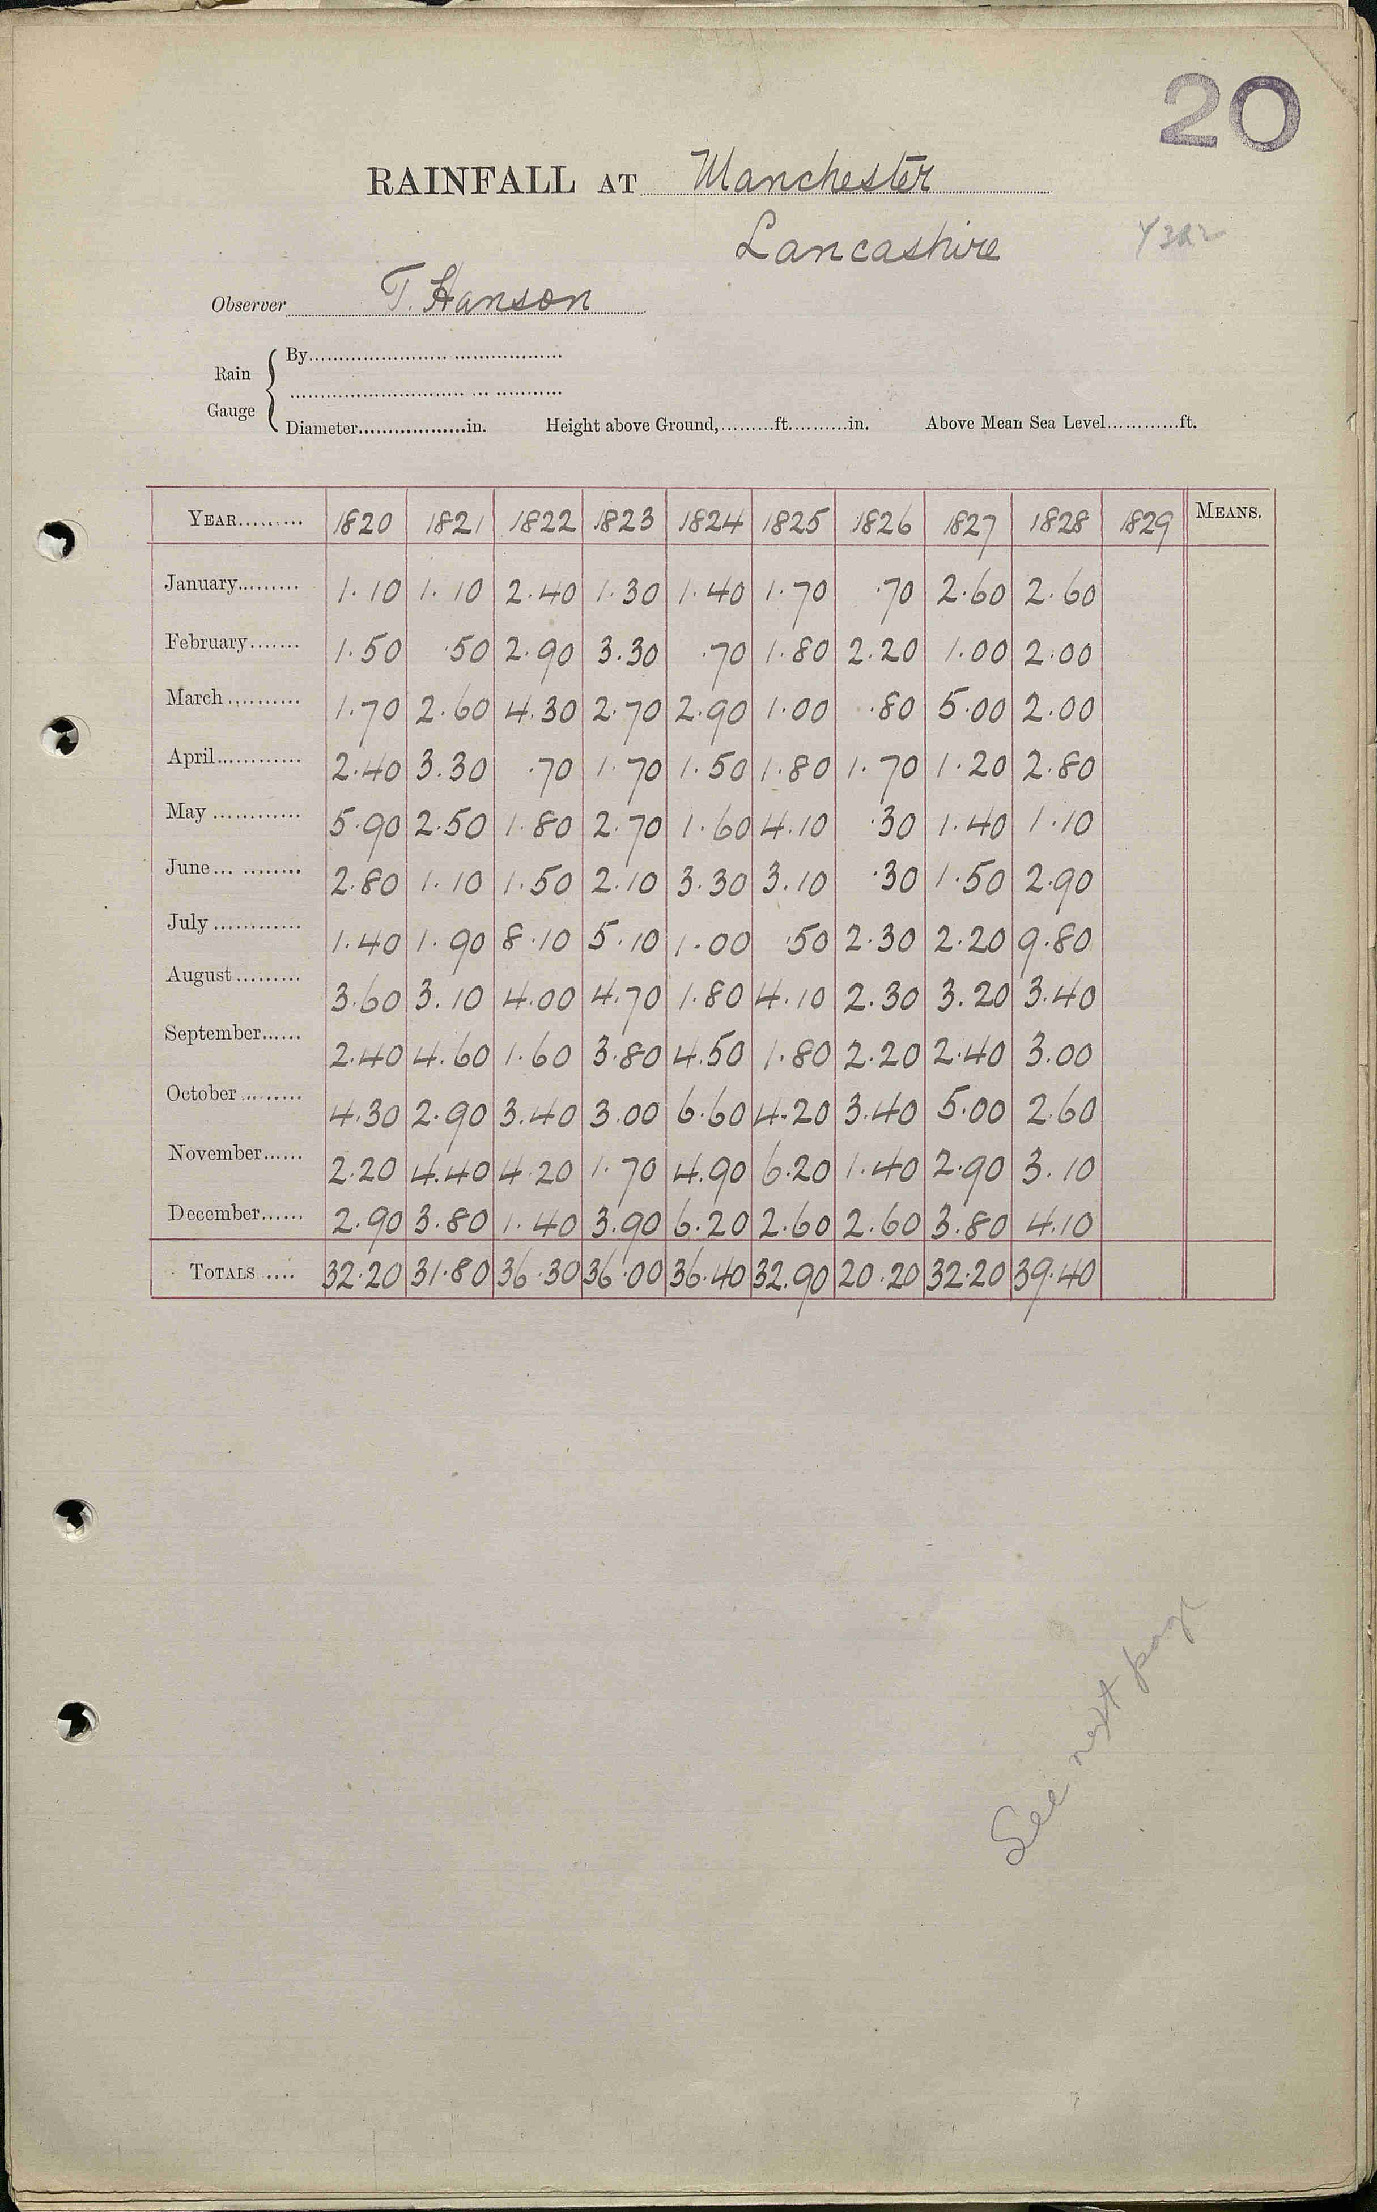 20
RAINFALL AT Manchester
Lancashire
Observer T. Hanson
Rain Gauge
By
Diameter in. Height above Ground, ft. in. Above Mean Sea Level ft.
YEAR 1820 1821 1822 1823 1824 1825 1826 1827 1828 1829 MEANS.
January 1.10 1.10 2.40 1.30 1.40 1.70 .70 2.60 2.60
February 1.50 .50 2.90 3.30 .70 1.80 2.20 1.00 2.00
March 1.70 2.60 4.30 2.70 2.90 1.00 .80 5.00 2.00
April 2.40 3.30 .70 1.70 1.50 1.80 1.70 1.20 2.80
May 5.90 2.50 1.80 2.70 1.60 4.10 .30 1.40 1.10
June 2.80 1.10 1.50 2.10 3.30 3.10 .30 1.50 2.90
July 1.40 1.90 8.10 5.10 1.00 .50 2.30 2.20 9.80
August 3.60 3.10 4.00 4.70 1.80 4.10 2.30 3.20 3.40
September 2.40 4.60 1.60 3.80 4.50 1.80 2.20 2.40 3.00
October 4.30 2.90 3.40 3.00 6.60 4.20 3.40 5.00 2.60
November 2.20 4.40 4.20 1.70 4.90 6.20 1.40 2.90 3.10
December 2.90 3.80 1.40 3.90 6.20 2.60 2.60 3.80 4.10
TOTALS 32.20 31.80 36.30 36.00 36.40 32.90 20.20 32.20 39.40
See next page